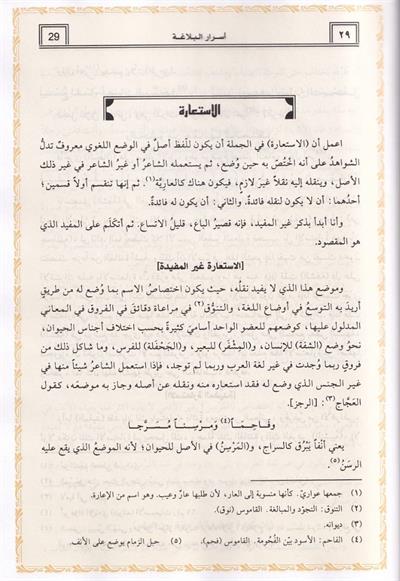 ٢٩
أسرار البلاغة
29
الاستعارة
اعمل أن (الاستعارة) في الجملة أن يكون للّفظ أصلٌ في الوضع اللغوي معروفٌ تدلُّ
الشواهدُ على أنه اختُصّ به حين وُضع، ثم يستعمله الشاعرُ أو غيرُ الشاعر في غير ذلك
الأصل، وينقله إليه نقلاً غيرَ لازمٍ، فيكون هناك كالعارِيَّة(١). ثم إنها تنقسم أولاً قسمين؛
أحدُهما: أن لا يكون لنقله فائدةٌ. والثاني: أن يكون له فائدة.
وأنا أبدأ بذكر غير المفيد، فإنه قصيرُ الباع، قليلُ الاتساع. ثم أتكلَّم على المفيد الذي
هو المقصود.
[الاستعارة غير المفيدة]
وموضع هذا الذي لا يفيد نقلُه، حيث يكون اختصاصُ الاسم بما وُضع له من طريقٍ
أريدَ به التوسعُ في أوضاع اللغة، والتنوُّق(٢) في مراعاة دقائقَ في الفروق في المعاني
المدلول عليها، كوضعهم للعضو الواحد أساميَ كثيرةً بحسب اختلاف أجناس الحيوان،
نحوُ وضع (الشفة) للإنسان، و(المِشْفَر) للبعير، و(الجَحْفَلة) للفرس، وما شاكل ذلك من
فروقٍ ربما وُجدت في غير لغة العرب وربما لم توجد، فإذا استعمل الشاعرُ شيئاً منها في
غير الجنس الذي وضع له فقد استعاره منه ونقله عن أصله وجاز به موضعَه، كقول
العَجَّاج(٣): [الرجز]
وَفَـاحِمـاً(٤) وَمَـرْسِنـاً مُسَـرَّجـا
يعني أنْفاً يَبْرُق كالسراج، و(المَرْسِنُ) في الأصل للحيوان؛ لأنه الموضعُ الذي يقع عليه
الرسَنُ(٥).
(١) جمعها عواريّ. كأنها منسوبة إلى العار، لأن طلبها عارٌ وعيب. وهو اسم من الإعارة.
(٢) التنوق: التجوّد والمبالغة. القاموس (نوق).
(٣) ديوانه.
(٤) الفاحم: الأسود بيّن الفُحومة. القاموس (فحم). (٥) حبل الزمام يوضع على الأنف.